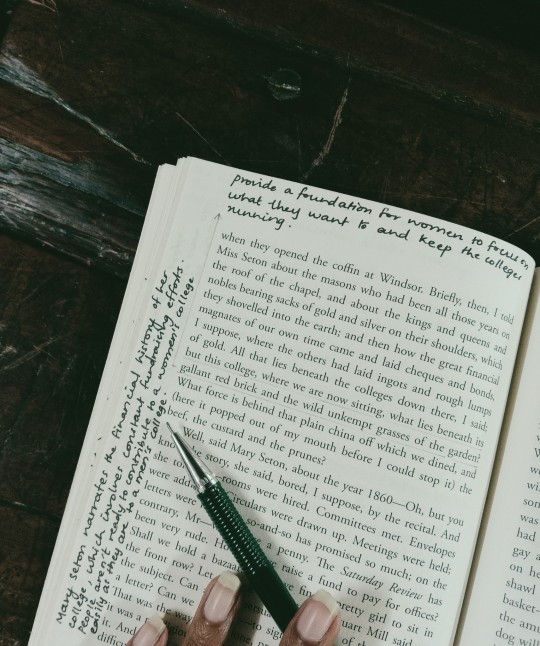 provide a foundation for women to focus on
what they want to and keep the colleges
running.
when they opened the coffin at Windsor. Briefly, then, I told
Miss Seton about the masons who had been all those years on
the roof of the chapel, and about the kings and queens and
nobles bearing sacks of gold and silver on their shoulders, which
they shovelled into the earth; and then how the great financial
magnates of our own time came and laid cheques and bonds,
I suppose, where the others had laid ingots and rough lumps
of gold. All that lies beneath the colleges down there, I said;
but this college, where we are now sitting, what lies beneath its
gallant red brick and the wild unkempt grasses of the garden?
What force is behind that plain china off which we dined, and
(here it popped out of my mouth before I could stop it) the
beef, the custard and the prunes?
Well, said Mary Seton, about the year 1860—Oh, but you
kno the story, she said, bored, I suppose, by the recital. And
she to rooms were hired. Committees met. Envelopes
were add Circulars were drawn up. Meetings were held;
letters were so-and-so has promised so much; on the
contrary, Mr— a penny. The Saturday Review has
been very rude. Ho raise a fund to pay for offices?
Shall we hold a bazaa pretty girl to sit in
the front row? Let uart Mill said
the subject. Can
a letter? Can we
That was the way
it was a
it. And
difficu
Mary Seton narrates the financial history of her
college, which involves constant fundraising efforts.
People aren't ready to contribute to a women's college
easily as they are to a men's college.
on
som
was
had
gay a
on he
shawl
basket-
the am
dog wi